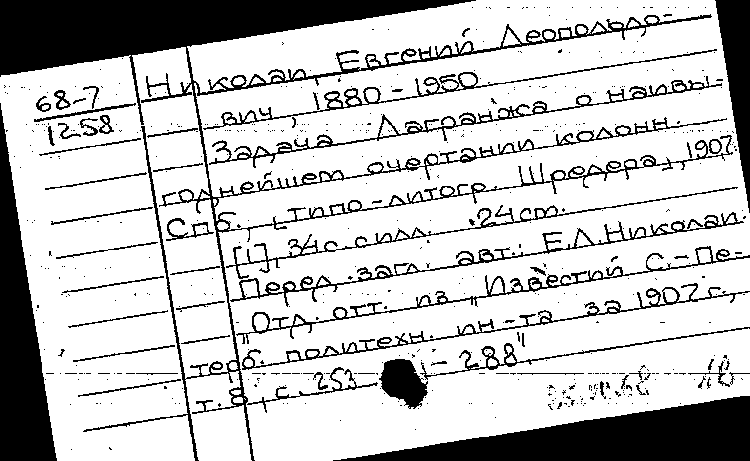 68-7
1258
Николаи, Евгений Леопольдо-
вич, 1880-1950.
Задача Лагранжа о наивы-
годнейшем очертании колонн.
Спб., "Типо-литогр. Шредера", 1907.
[1], 34с. с илл. 24cm.
Перед загл. авт.: Е.Л.Николаи.
"Отд. отт. из "Известий С.-Пе-
терб. политехн. ин-та за 1907г.,
т. 8, с. 253 - 288".
18